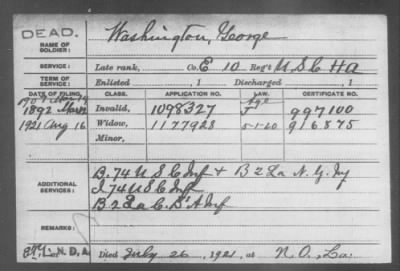 DEAD.
NAME OF SOLDIER:
Washington, George
SERVICE:
Late rank, Co. E 10 Reg't U S C H A
TERM OF SERVICE:
Enlisted , 1 Discharged , 1
DATE OF FILING. CLASS. APPLICATION NO. LAW. CERTIFICATE NO.
1892 Invalid, 1098327 997100
1921 Aug 16 Widow, 1177928 5-1-20 916875
Minor,
ADDITIONAL SERVICES:
B. 74 U S C Inf + B 2 La N. G. Inf
I. 74 U S C Inf
B 2 La C. D' A Inf
REMARKS:
N. D. A. Died July 26, 1921, at N. O., La.